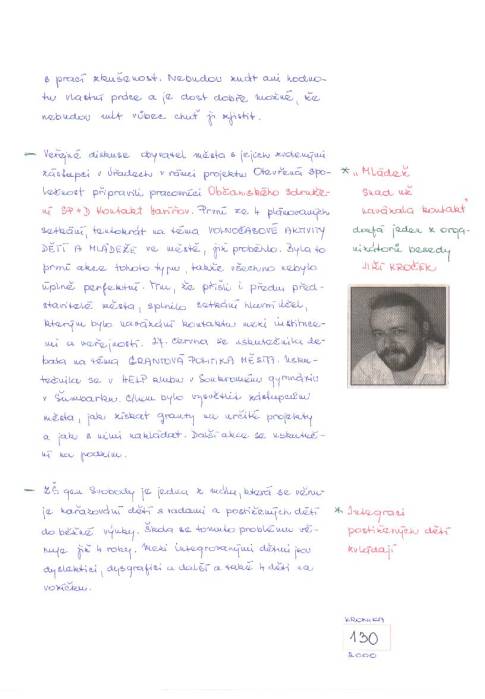 s prací zkušenost. Nebudou znát ani hodno-
tu vlastní práce a je dost dobře možné, že
nebudou mít vůbec chuť ji zjistit.
– Veřejné diskuse obyvatel města s jejich zvolenými
zástupci v úřadech v rámci projektu Otevřená spo-
lečnost připravili pracovníci Občanského sdruže-
ní SP+D Kontakt Havířov. První ze 4 plánovaných
setkání, tentokrát na téma VOLNOČASOVÉ AKTIVITY
DĚTÍ A MLÁDEŽE ve městě, již proběhlo. Byla to
první akce tohoto typu, takže všechno nebylo
úplně perfektní. Tím, že přišli i přední před-
stavitelé města, splnilo setkání hlavní účel,
kterým bylo navázání kontaktu mezi instituce-
mi a veřejností. 27. června se uskutečnila de-
bata na téma GRANTOVÁ POLITIKA MĚSTA. Usku-
tečnila se v HELP klubu v Soukromém gymnáziu
v Šumbarku. Cílem bylo vysvětlit zástupcům
města, jak získat granty na určité projekty
a jak s nimi nakládat. Další akce se uskuteč-
ní na podzim.
– ZŠ gen. Svobody je jedna z mála, která se věnu-
je zařazování dětí s vadami a postižených dětí
do běžné výuky. Škola se tomuto problému vě-
nuje již 4 roky. Mezi integrovanými dětmi jsou
dyslektici, dysgrafici a další a také 4 děti na
vozíčku.
* „Mládež
snad už
navázala kontakt"
doufá jeden z orga-
nizátorů besedy
JIŘÍ KROČEK
* Integraci
postižených dětí
zvládají
KRONIKA
130
2000